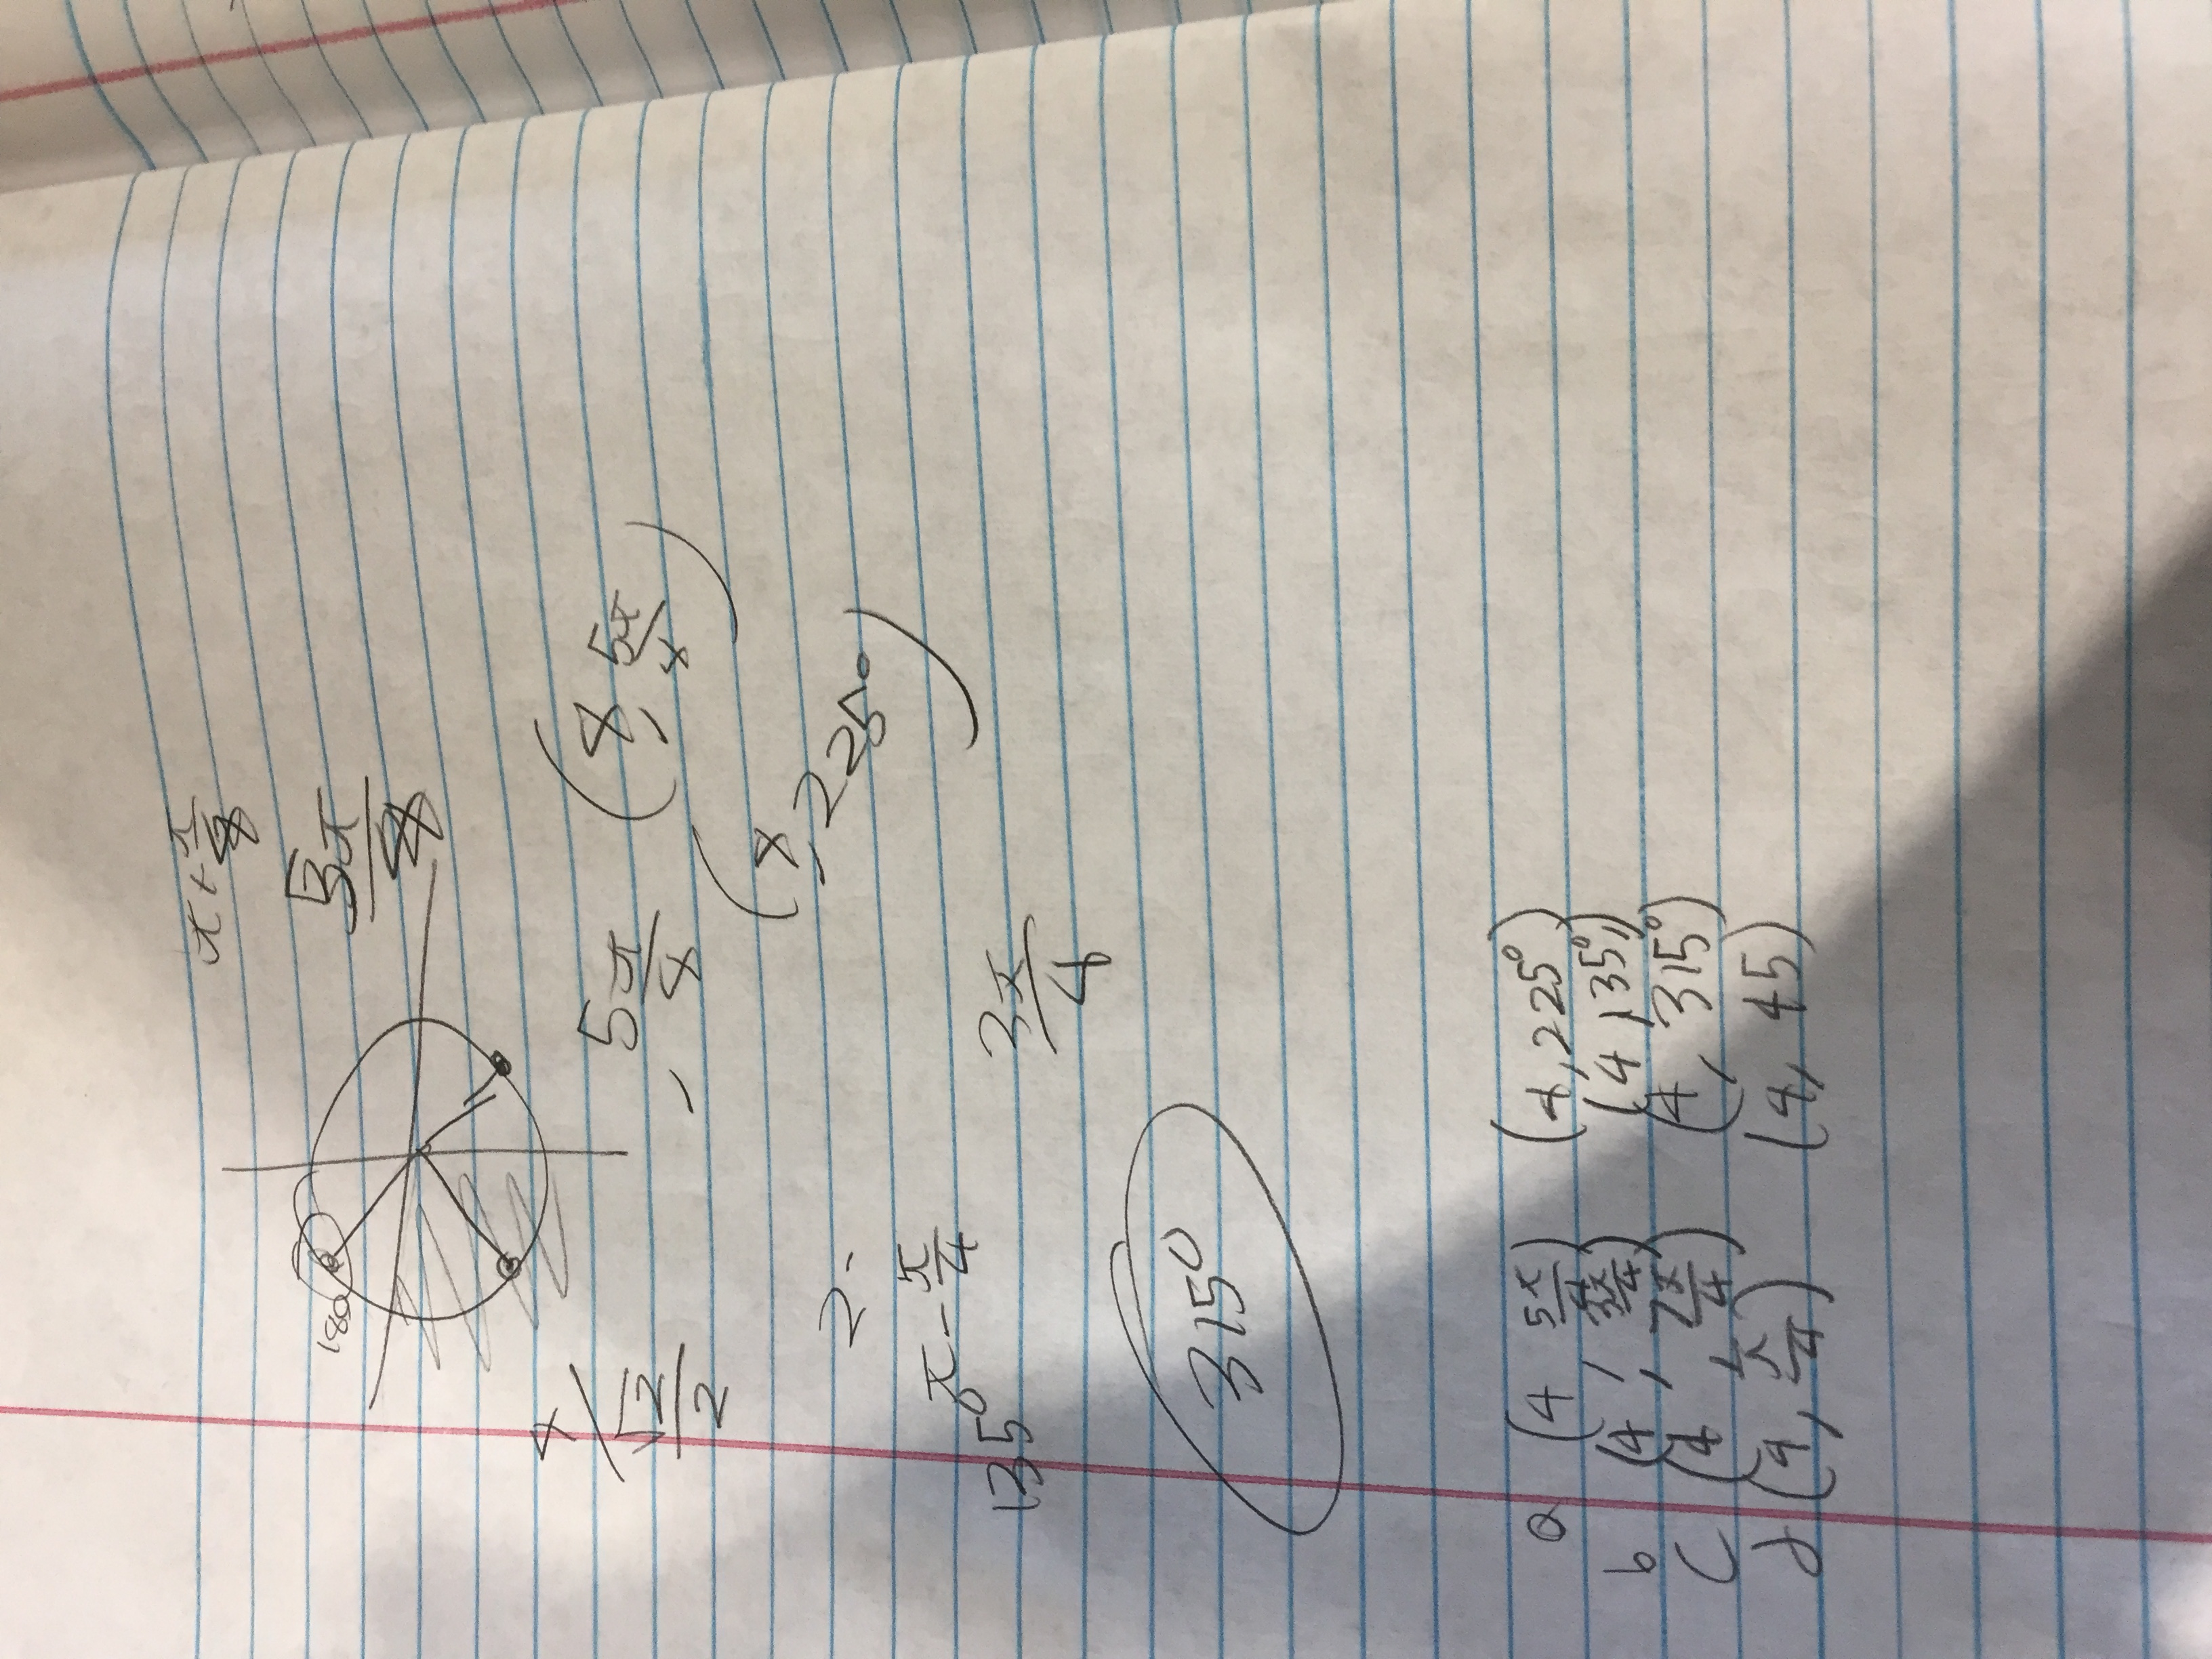 π + π/8
180
5π/8
4/(√2/2)
, 5π/8 (8, 5π/8)
(8, 225°)
2.
π - π/4
135°
3π/4
315°
a (4, 5π/4) (4, 225°)
b (4, 3π/4) (4, 135°)
c (4, 7π/4) (4, 315°)
d (4, π/4) (4, 45)